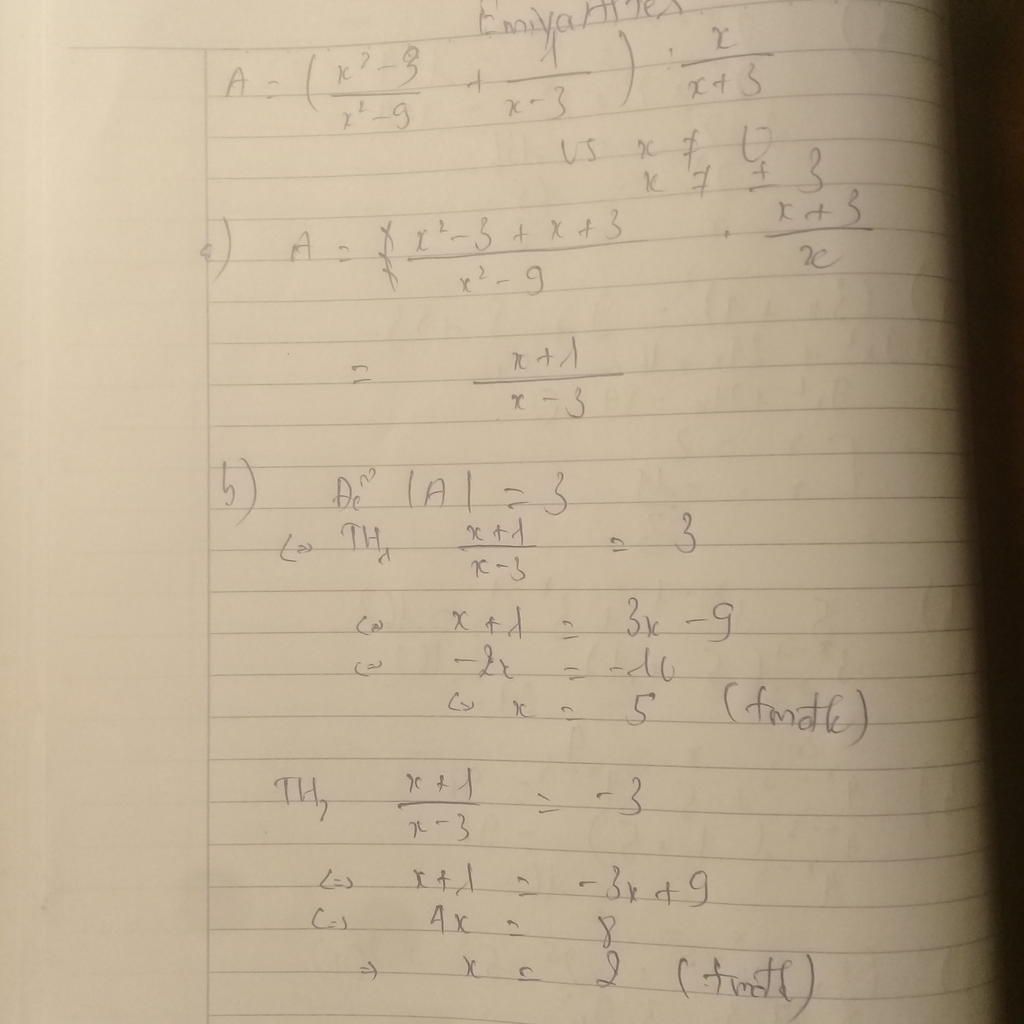 A = ( (x² - 3)/(x² - 9) + 1/(x - 3) ) : x/(x + 3)
vs x ≠ 0
x ≠ ± 3
a) A = (x² - 3 + x + 3)/(x² - 9) . (x + 3)/x
= (x + 1)/(x - 3)
b) Để |A| = 3
<=> TH1 (x + 1)/(x - 3) = 3
<=> x + 1 = 3x - 9
<=> -2x = -10
<=> x = 5 (tmđk)
TH2 (x + 1)/(x - 3) = -3
<=> x + 1 = -3x + 9
<=> 4x = 8
=> x = 2 (tmđk)